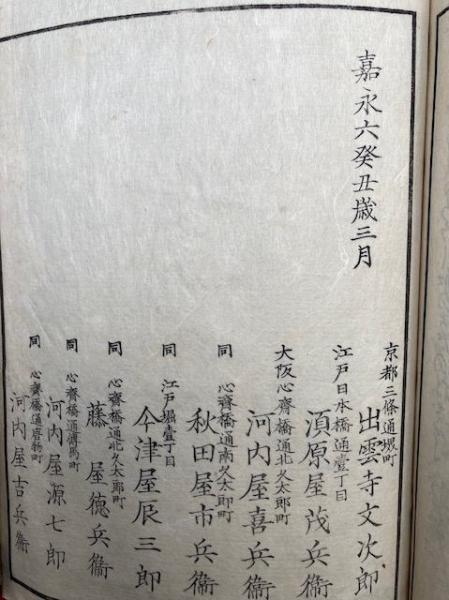 嘉永六癸丑歳三月
京都三條通堺町
出雲寺文次郎
江戸日本橋通壹丁目
須原屋茂兵衞
大阪心齋橋通北久太郎町
河内屋喜兵衞
同 心齋橋通南久太郎町
秋田屋市兵衞
同 江戸堀壹丁目
今津屋辰三郎
同 心齋橋通北久太郎町
藤屋德兵衞
同 心齋橋通博馬町
河内屋源七郎
同 心齋橋通唐物町
河内屋吉兵衞